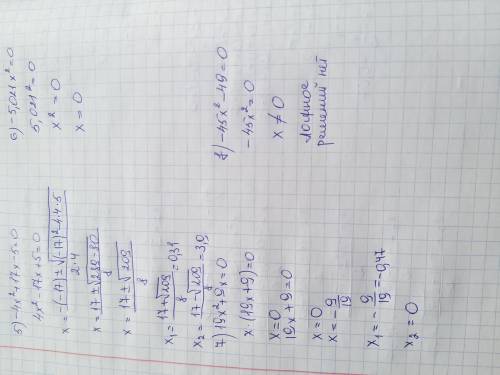 5) -4x²+17x-5=0
4x²-17x+5=0
x=-(-17)±√(-17)²-4·4·5 / 2·4
x=17±√289-80 / 8
x=17±√209 / 8
x₁=17-√209 / 8=0,31
x₂=17-√209 / 8=3,9
7) 19x²+9x=0
x·(19x+9)=0
x=0
19x+9=0
x=0
x=-9/19
x₁=-9/19=-0,47
x₂=0
6) -5,021x²=0
5,021²=0
x²=0
x=0
8) -45x²-49=0
-45x²=0
x≠0
Ложное
решений нет